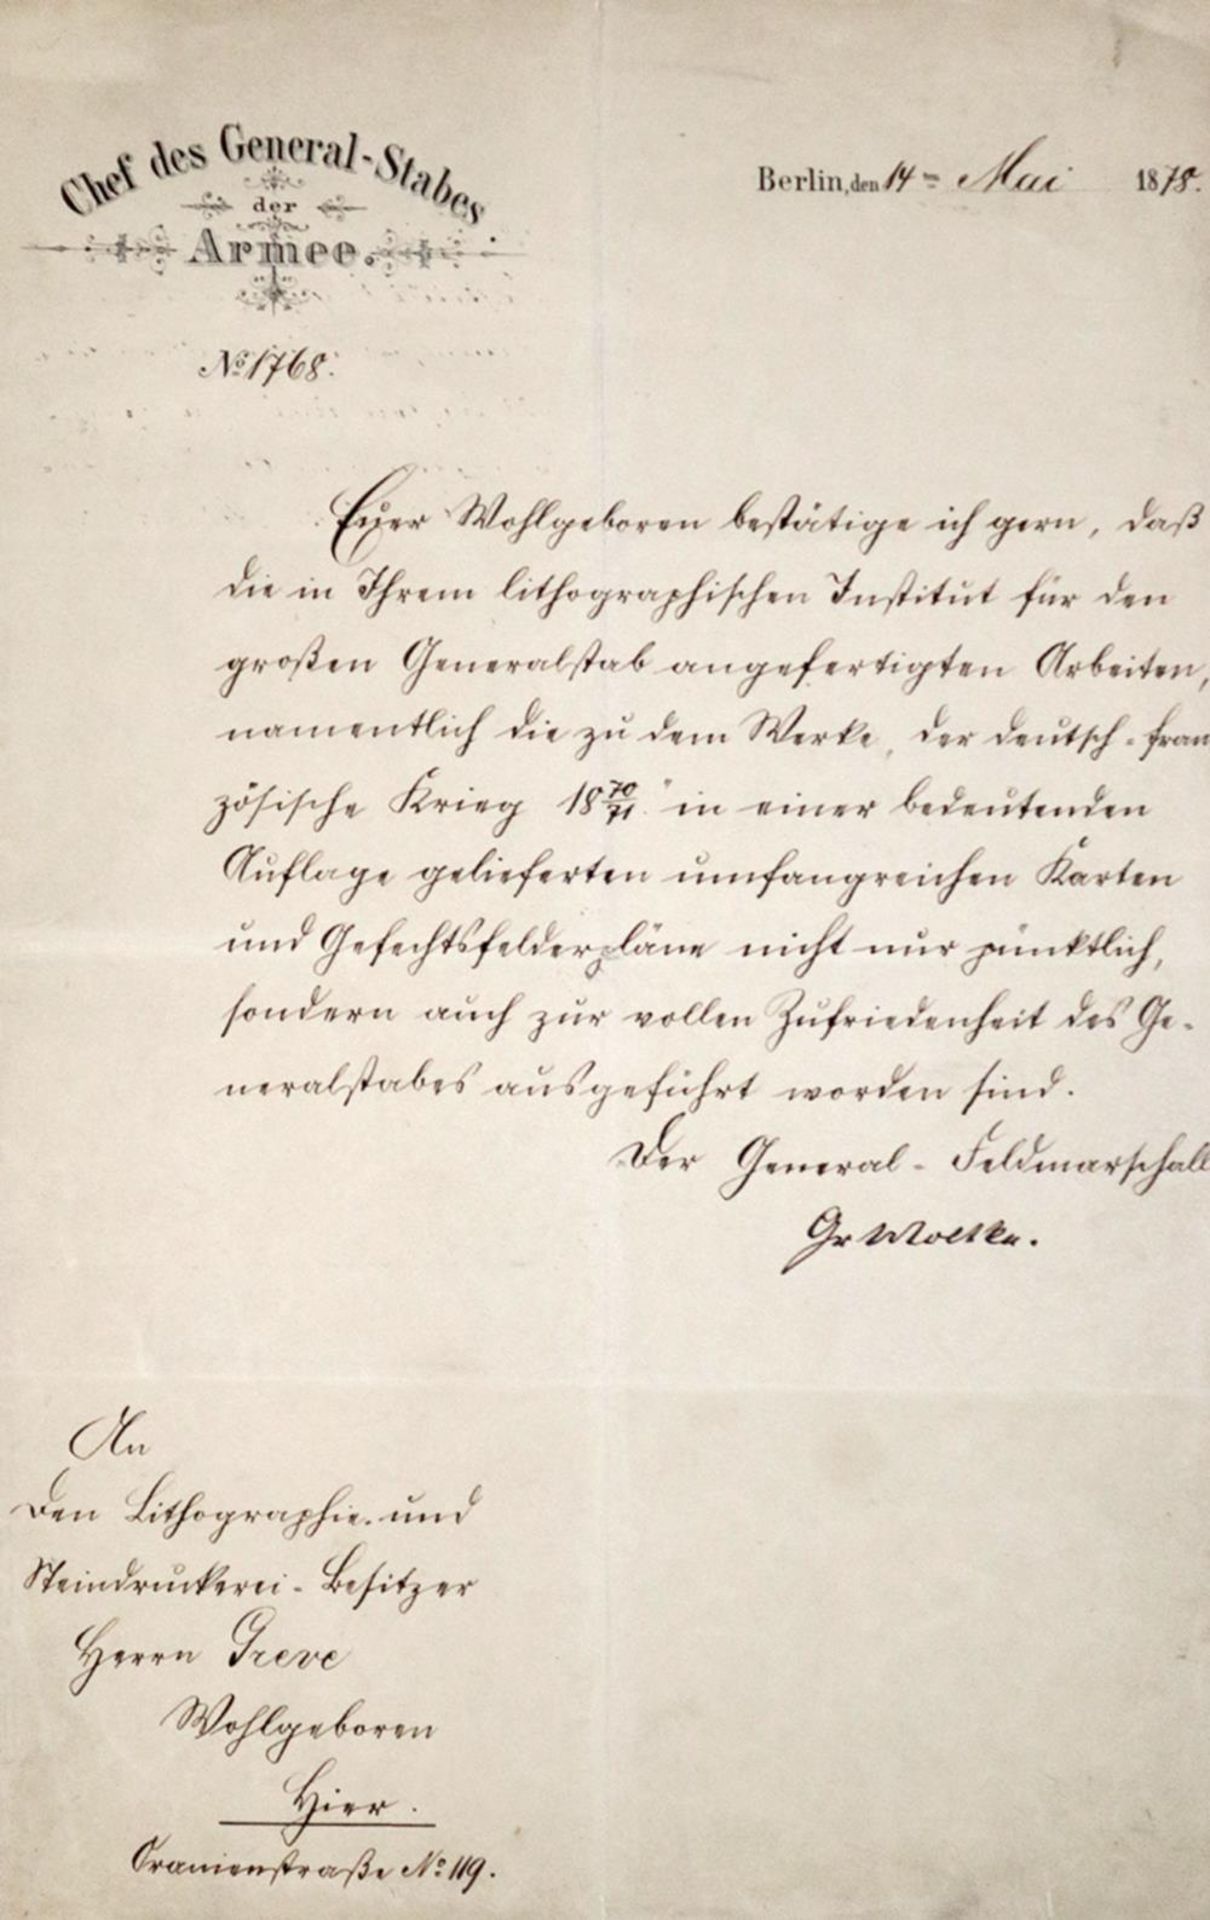 Chef des General-Stabes
der
Armee.
Berlin, den 14ten Mai 1878.
No 1768.
Euer Wohlgeboren bestätige ich gern, daß
die in Ihrem lithographischen Institut für den
großen Generalstab angefertigten Arbeiten,
namentlich die zu dem Werke „der deutsch-fran
zösische Krieg 1870/71" in einer bedeutenden
Auflage gelieferten umfangreichen Karten
und Gefechtsfelderpläne nicht nur pünktlich,
sondern auch zur vollen Zufriedenheit des Ge-
neralstabes ausgeführt worden sind.
Der General-Feldmarschall
Gr Moltke.
An
den Lithographie- und
Steindruckerei-Besitzer
Herrn Greve
Wohlgeboren
Hier.
Oranienstraße No 119.